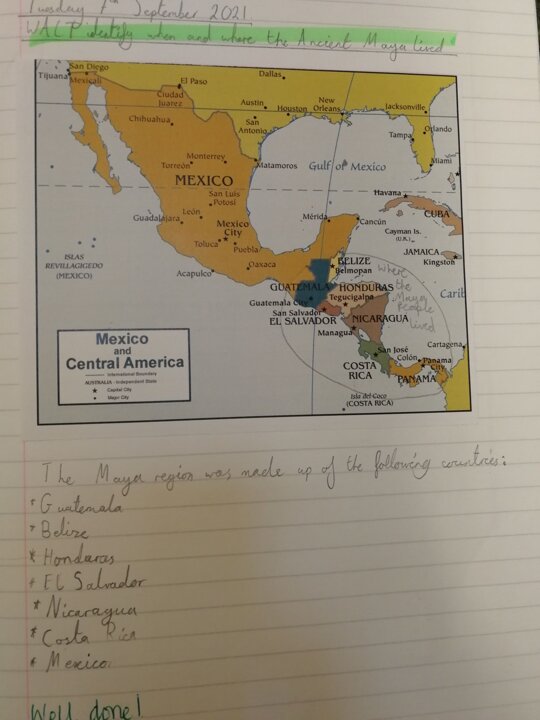 Tuesday 7th September 2021
WALT identify when and where the Ancient Maya lived
San Diego
Tijuana
Mexicali
El Paso
Ciudad
Juarez
Dallas
Austin
Houston
New
Orleans
San
Antonio
Jacksonville
Orlando
Tampa
Miami
Chihuahua
Monterrey
Torreón
Matamoros
Gulf of Mexico
MEXICO
San Luis
Potosi
León
Guadalajara
Mexico
City
Toluca
Puebla
Mérida
Cancún
Havana
CUBA
Cayman Is.
(U.K.)
JAMAICA
Kingston
ISLAS
REVILLAGIGEDO
(MEXICO)
Acapulco
Oaxaca
BELIZE
Belmopan
GUATEMALA
Guatemala City
HONDURAS
Tegucigalpa
San Salvador
EL SALVADOR
NICARAGUA
Managua
where
the
Maya
People
lived
Carib
Cartagena
San José
Colón
Panama
City
COSTA
RICA
PANAMA
Isla del Coco
(COSTA RICA)
Mexico
and
Central America
International Boundary
AUSTRALIA - Independent State
★ Capital City
• Major City
The Maya region was made up of the following countries:
* Guatemala
* Belize
* Honduras
* El Salvador
* Nicaragua
* Costa Rica
* Mexico
Well done!